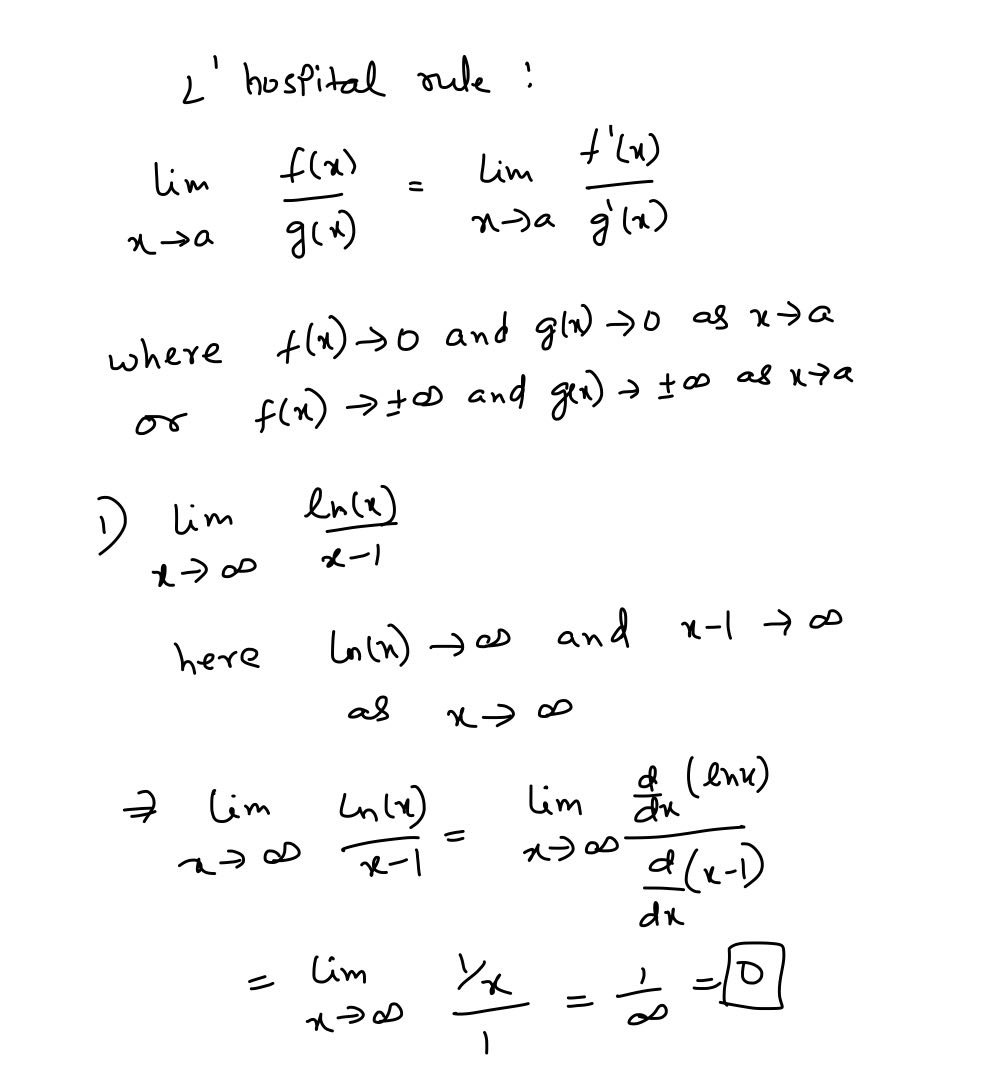 L' hospital rule :
lim x→a f(x)/g(x) = lim x→a f'(x)/g'(x)
where f(x)→0 and g(x)→0 as x→a
or f(x)→±∞ and g(x)→±∞ as x→a
1) lim x→∞ ln(x)/x-1
here ln(x)→∞ and x-1→∞
as x→∞
⇒ lim x→∞ ln(x)/x-1 = lim x→∞ d/dx (lnx) / d/dx (x-1)
= lim x→∞ 1/x / 1 = 1/∞ = 0